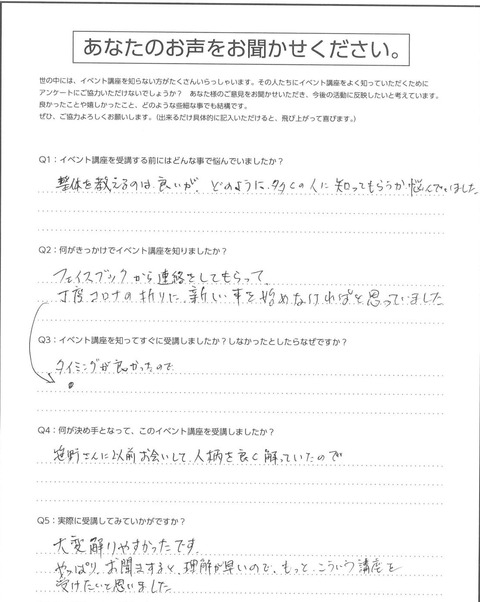 あなたのお声をお聞かせください。
世の中には、イベント講座を知らない方がたくさんいらっしゃいます。その人たちにイベント講座をよく知っていただくために
アンケートにご協力いただけないでしょうか？ あなた様のご意見をお聞かせいただき、今後の活動に反映したいと考えています。
良かったことや嬉しかったこと、どのような些細な事でも結構です。
ぜひ、ご協力よろしくお願いします。（出来るだけ具体的に記入いただけると、飛び上がって喜びます。）
Q1：イベント講座を受講する前にはどんな事で悩んでいましたか？
整体を教えるのは良いが、どのように多くの人に知ってもらうか悩んでいました
Q2：何がきっかけでイベント講座を知りましたか？
フェイスブックから連絡をしてもらって、
丁度コロナの折りに、新しい事を始めなければと思っていました
Q3：イベント講座を知ってすぐに受講しましたか？しなかったとしたらなぜですか？
タイミングが良かったので
Q4：何が決め手となって、このイベント講座を受講しましたか？
笹野さんに以前お会いして、人柄を良く解っていたので
Q5：実際に受講してみていかがですか？
大変解りやすかったです。
やっぱり、お聞きすると、理解が早いので、もっと、こういう講座を
受けたいと思いました